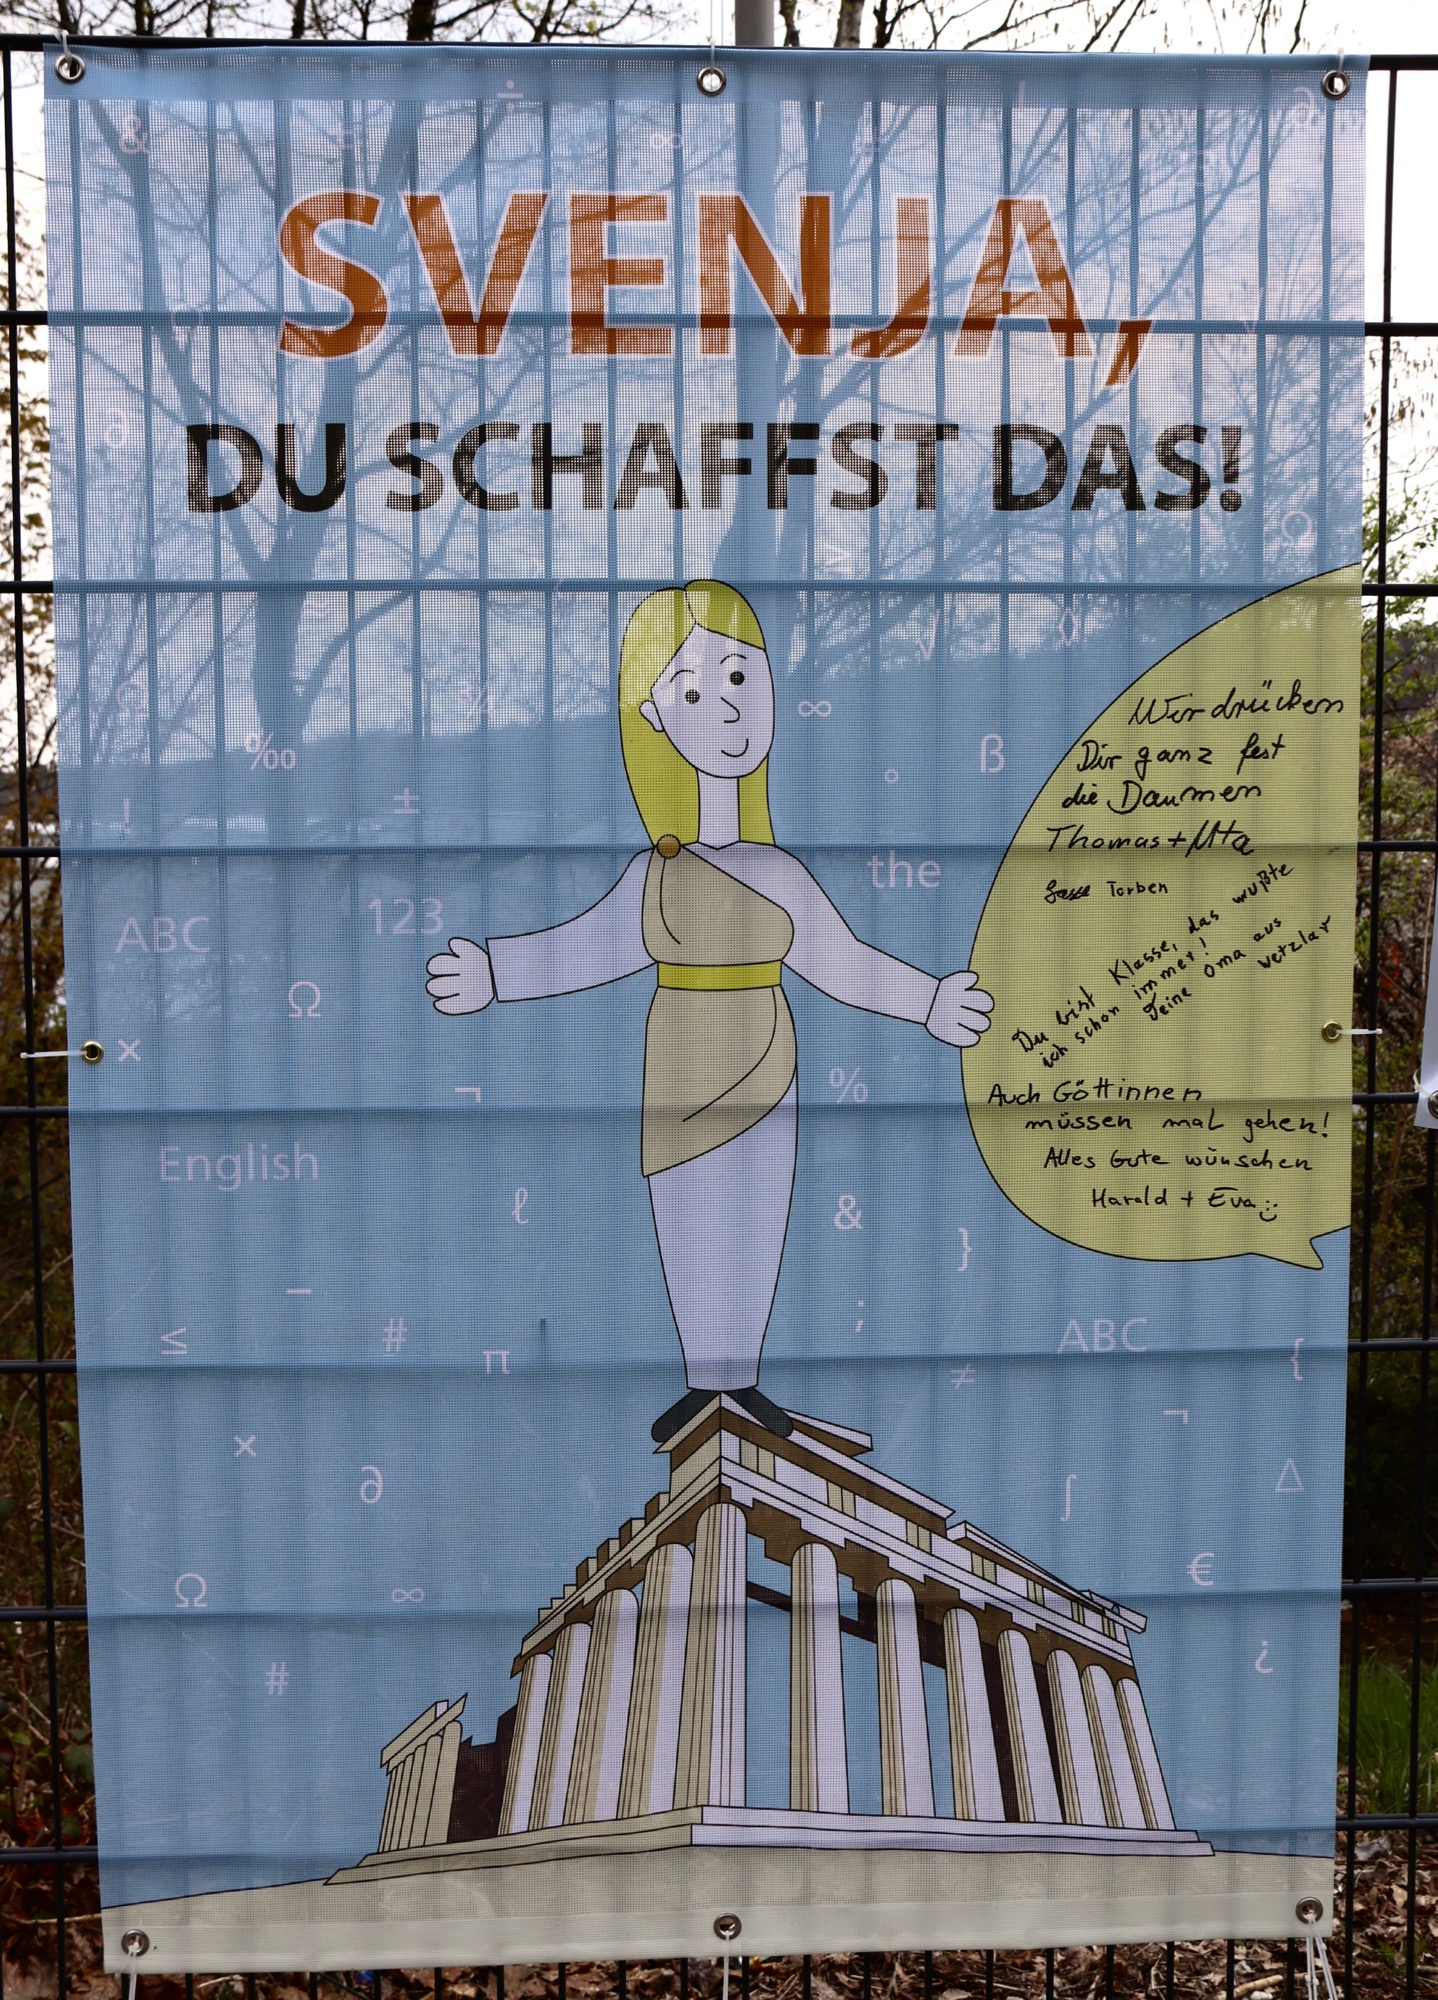 SVENJA,
DU SCHAFFST DAS!
Wir drücken
Dir ganz fest
die Daumen
Thomas + Uta
Torben
Du bist Klasse, das wußte
ich schon immer!
Deine Oma aus
Wetzlar
Auch Göttinnen
müssen mal gehen!
Alles Gute wünschen
Harald + Eva
& ÷ ∞ ∂
∂ Ω
≥
√ ◊
Ω ¾ ∞
‰ ° ß
! ±
the
ABC 123
Ω
×
¬ %
English
ℓ &
}
–
≤ # π ; ABC {
≠
× ¬
∂ ∫ Δ
Ω ∞ €
# ¿